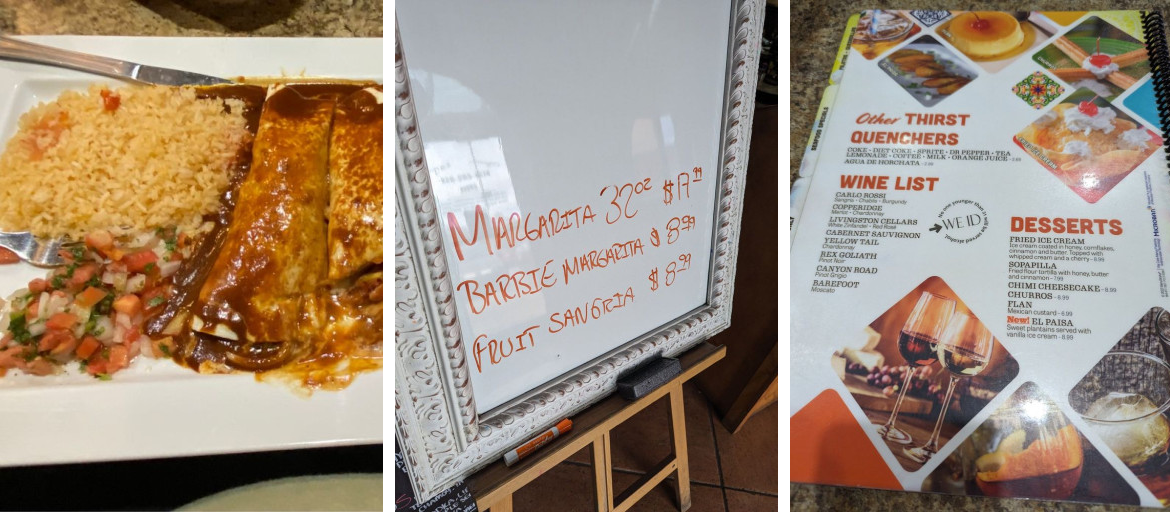 MARGARITA 32oz $17.99
BARBIE MARGARITA $8.99
FRUIT SANGRIA $8.29
Other THIRST
QUENCHERS
COKE • DIET COKE • SPRITE • DR PEPPER • TEA
LEMONADE • COFFEE • MILK • ORANGE JUICE - 3.99
AGUA DE HORCHATA
WINE LIST
CARLO ROSSI
Sangria • Chablis • Burgundy
COPPERIDGE
Merlot • Chardonnay
LIVINGSTON CELLARS
White Zinfandel • Red Rosé
CABERNET SAUVIGNON
YELLOW TAIL
Chardonnay
REX GOLIATH
Pinot Noir
CANYON ROAD
Pinot Grigio
BAREFOOT
Moscato
WE ID
DESSERTS
FRIED ICE CREAM
Ice cream coated in honey, cornflakes,
cinnamon and butter. Topped with
whipped cream and a cherry - 6.99
SOPAPILLA
Fried flour tortilla with honey, butter
and cinnamon - 7.99
CHIMI CHEESECAKE - 8.99
CHURROS - 8.99
FLAN
Mexican custard - 6.99
New! EL PAISA
Sweet plantains served with
vanilla ice cream - 8.99